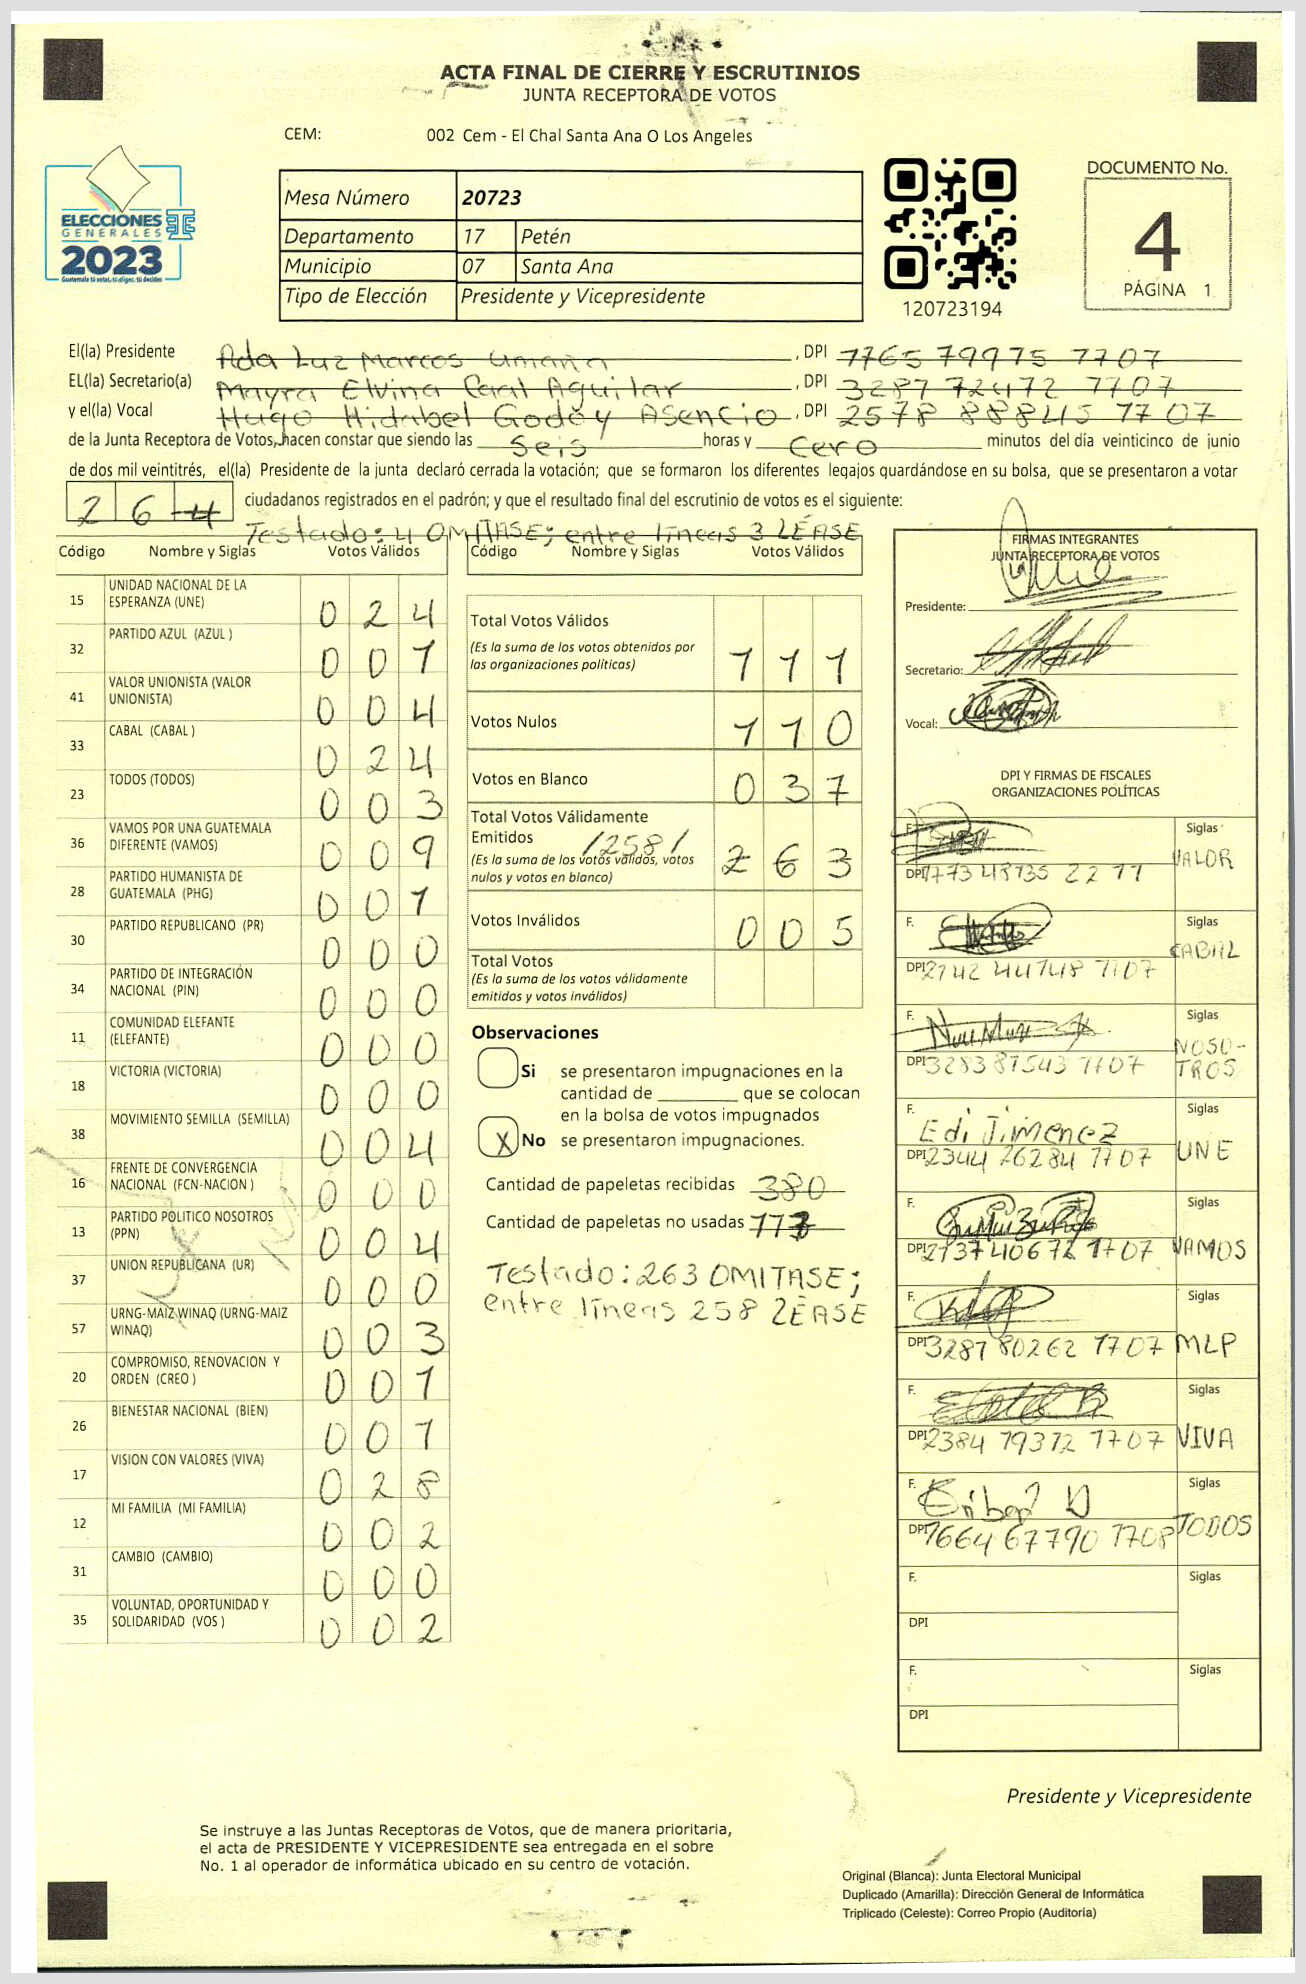 ACTA FINAL DE CIERRE Y ESCRUTINIOS
JUNTA RECEPTORA DE VOTOS
CEM: 002 Cem - El Chal Santa Ana O Los Angeles
ELECCIONES
GENERALES
2023
Guatemala tú votas, tú eliges, tú decides
Mesa Número 20723
Departamento 17 Petén
Municipio 07 Santa Ana
Tipo de Elección Presidente y Vicepresidente
120723194
DOCUMENTO No.
4
PÁGINA 1
El(la) Presidente Ada Luz Marcos Umaña, DPI 7765 79975 7707
EL(la) Secretario(a) Mayra Elvina Caal Aguilar, DPI 3287 72472 7707
y el(la) Vocal Hugo Hidabel Godoy Asencio, DPI 2578 88845 7707
de la Junta Receptora de Votos, hacen constar que siendo las Seis horas y Cero minutos del día veinticinco de junio
de dos mil veintitrés, el(la) Presidente de la junta declaró cerrada la votación; que se formaron los diferentes legajos quardándose en su bolsa, que se presentaron a votar
2 6 4 ciudadanos registrados en el padrón; y que el resultado final del escrutinio de votos es el siguiente:
Testado: 4 OMITASE; entre líneas 3 LÉASE
Código Nombre y Siglas Votos Válidos
15 UNIDAD NACIONAL DE LA ESPERANZA (UNE) 0 2 4
32 PARTIDO AZUL (AZUL ) 0 0 1
41 VALOR UNIONISTA (VALOR UNIONISTA) 0 0 4
33 CABAL (CABAL ) 0 2 4
23 TODOS (TODOS) 0 0 3
36 VAMOS POR UNA GUATEMALA DIFERENTE (VAMOS) 0 0 9
28 PARTIDO HUMANISTA DE GUATEMALA (PHG) 0 0 1
30 PARTIDO REPUBLICANO (PR) 0 0 0
34 PARTIDO DE INTEGRACIÓN NACIONAL (PIN) 0 0 0
11 COMUNIDAD ELEFANTE (ELEFANTE) 0 0 0
18 VICTORIA (VICTORIA) 0 0 0
38 MOVIMIENTO SEMILLA (SEMILLA) 0 0 4
16 FRENTE DE CONVERGENCIA NACIONAL (FCN-NACION ) 0 0 0
13 PARTIDO POLITICO NOSOTROS (PPN) 0 0 4
37 UNION REPUBLICANA (UR) 0 0 0
57 URNG-MAIZ WINAQ (URNG-MAIZ WINAQ) 0 0 3
20 COMPROMISO, RENOVACION Y ORDEN (CREO ) 0 0 1
26 BIENESTAR NACIONAL (BIEN) 0 0 1
17 VISION CON VALORES (VIVA) 0 2 8
12 MI FAMILIA (MI FAMILIA) 0 0 2
31 CAMBIO (CAMBIO) 0 0 0
35 VOLUNTAD, OPORTUNIDAD Y SOLIDARIDAD (VOS ) 0 0 2
Código Nombre y Siglas Votos Válidos
Total Votos Válidos
(Es la suma de los votos obtenidos por las organizaciones políticas) 1 1 1
Votos Nulos 1 1 0
Votos en Blanco 0 3 7
Total Votos Válidamente Emitidos /258/
(Es la suma de los votos válidos, votos nulos y votos en blanco) 2 6 3
Votos Inválidos 0 0 5
Total Votos
(Es la suma de los votos válidamente emitidos y votos inválidos)
Observaciones
Si se presentaron impugnaciones en la
cantidad de ________ que se colocan
en la bolsa de votos impugnados
X No se presentaron impugnaciones.
Cantidad de papeletas recibidas 380
Cantidad de papeletas no usadas 117
Testado: 263 OMITASE;
entre líneas 258 LÉASE
FIRMAS INTEGRANTES
JUNTA RECEPTORA DE VOTOS
Presidente:
Secretario:
Vocal:
DPI Y FIRMAS DE FISCALES
ORGANIZACIONES POLÍTICAS
F. Siglas VALOR
DPI 1773 48735 2211
F. Siglas CABAL
DPI 2142 44748 1707
F. Siglas NOSO-
TROS
DPI 3283 87543 1707
F. Edi Jimenez Siglas UNE
DPI 2344 26284 1707
F. Siglas VAMOS
DPI 2737 40672 1707
F. Siglas MLP
DPI 3287 80262 1707
F. Siglas VIVA
DPI 2384 79372 1707
F. Siglas TODOS
DPI 1664 67790 1708
F. Siglas
DPI
F. Siglas
DPI
Presidente y Vicepresidente
Se instruye a las Juntas Receptoras de Votos, que de manera prioritaria,
el acta de PRESIDENTE Y VICEPRESIDENTE sea entregada en el sobre
No. 1 al operador de informática ubicado en su centro de votación.
Original (Blanca): Junta Electoral Municipal
Duplicado (Amarilla): Dirección General de Informática
Triplicado (Celeste): Correo Propio (Auditoría)